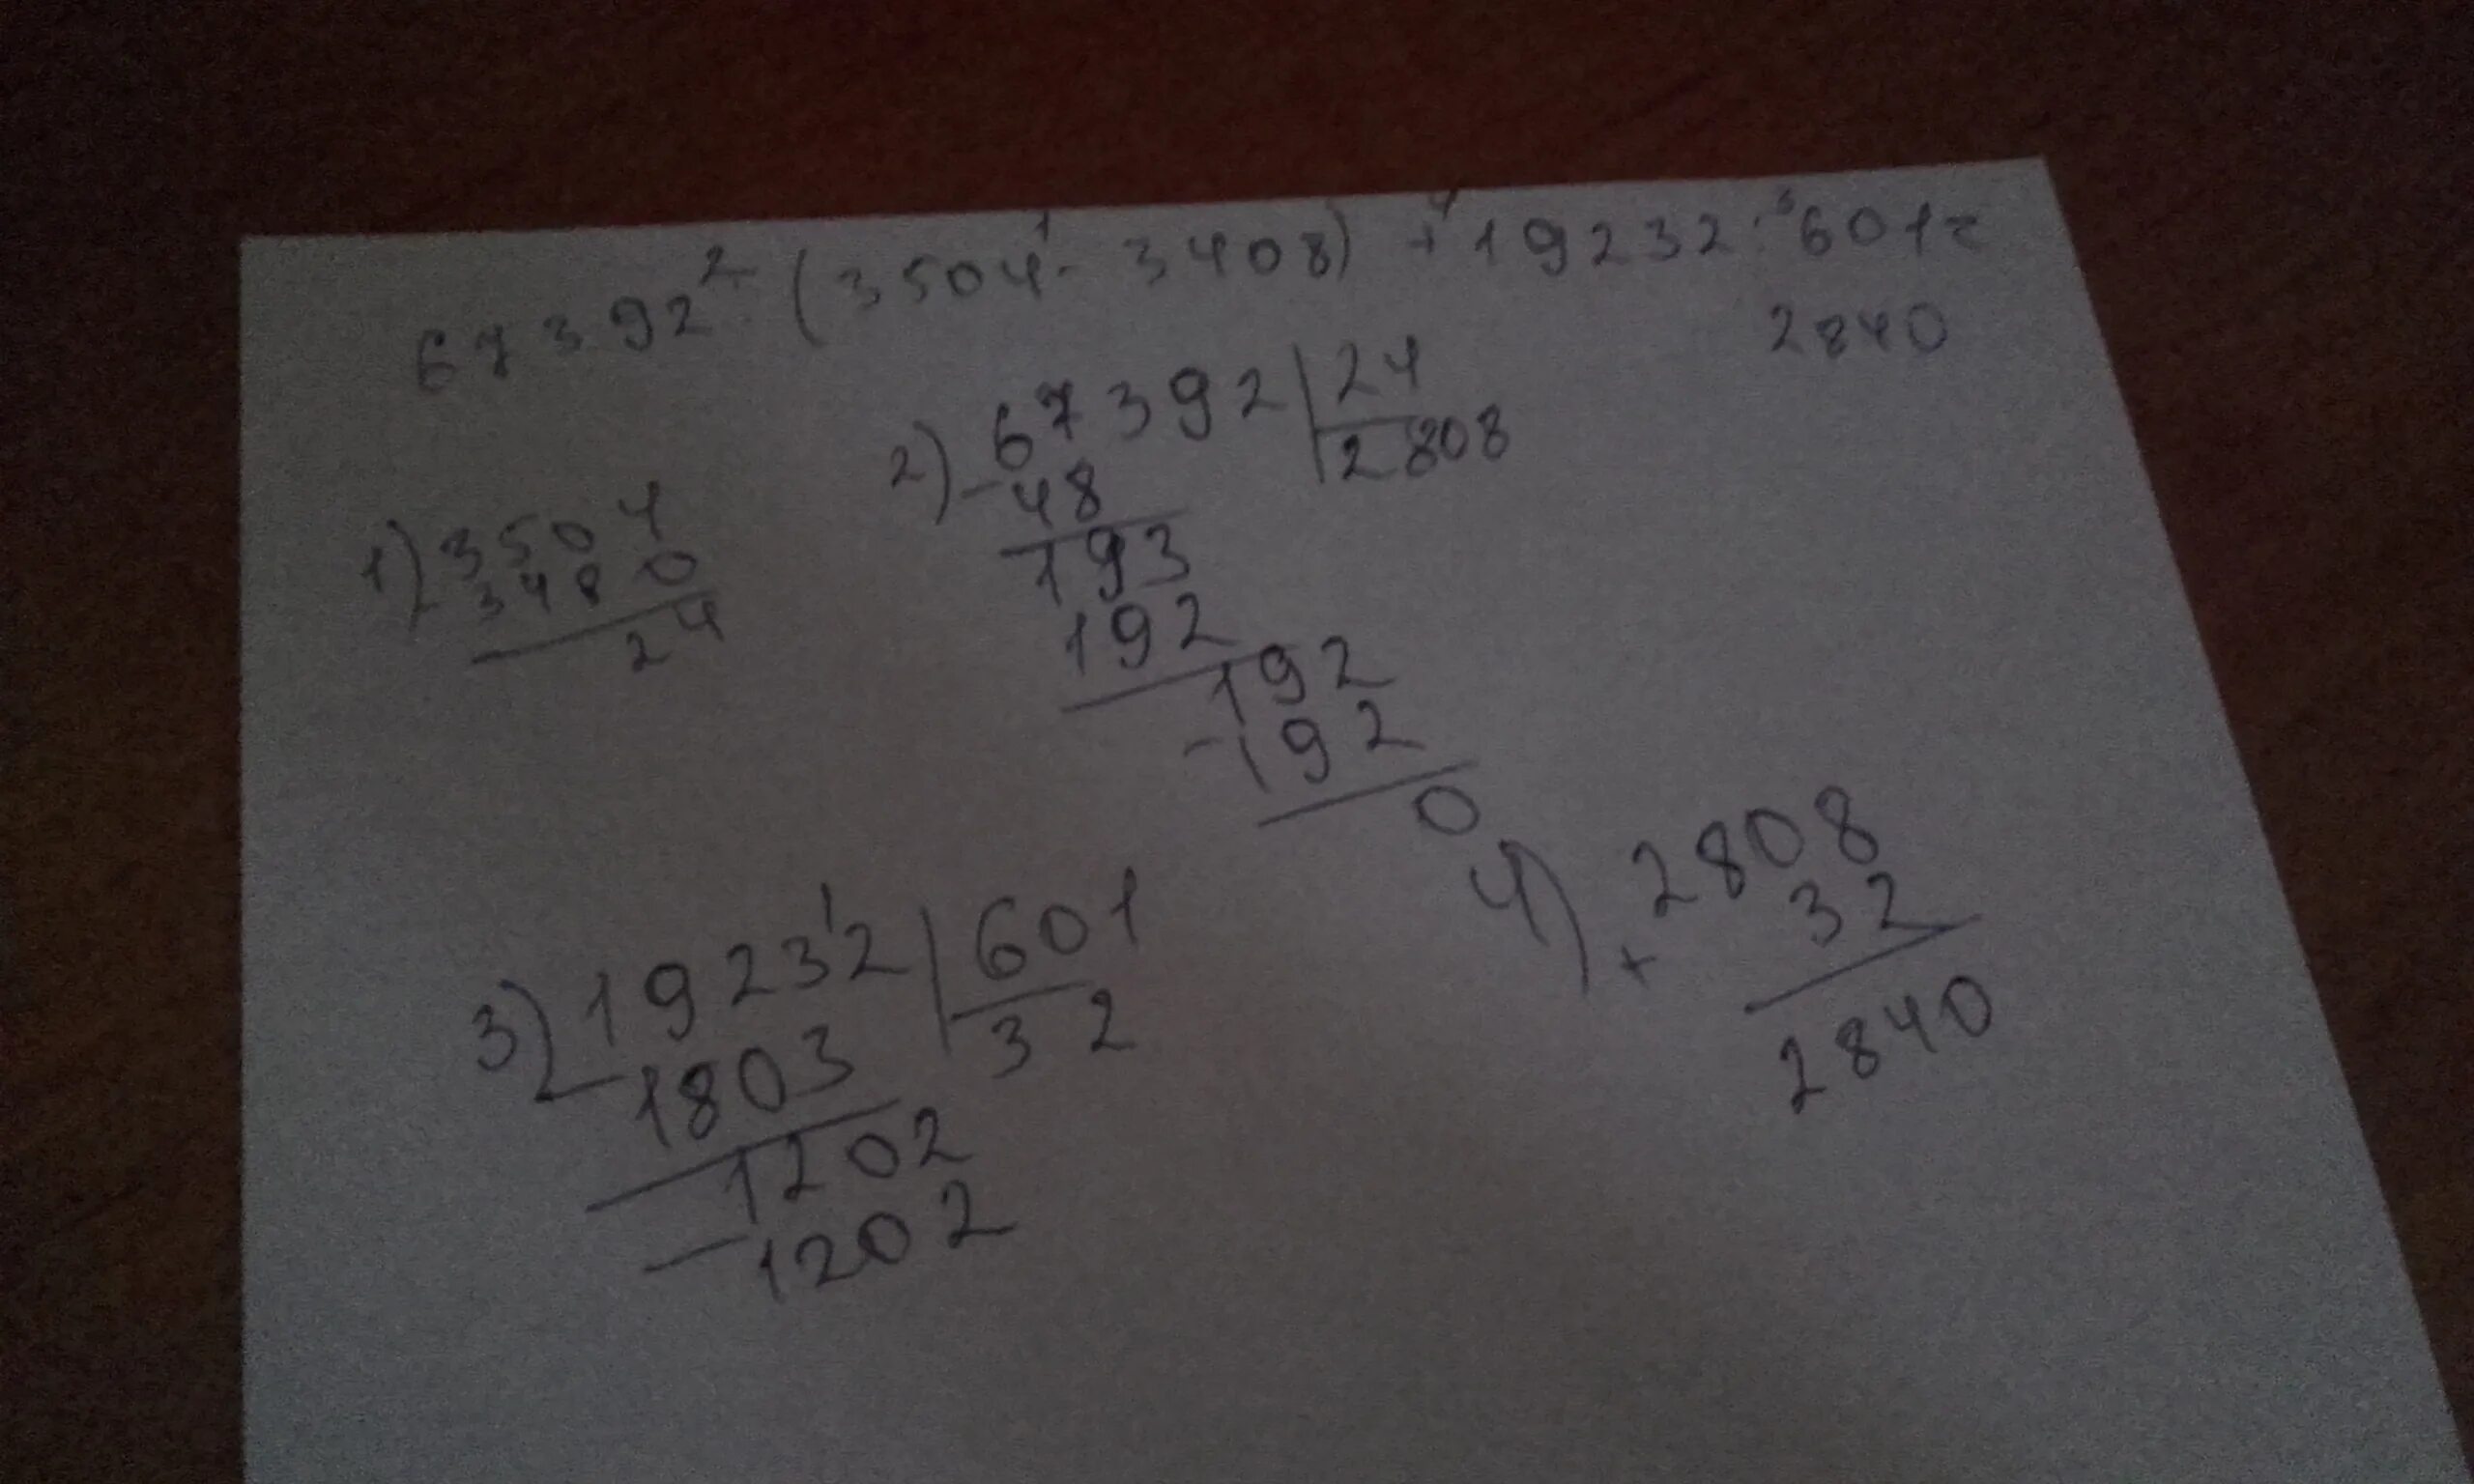 67392 : (3504 - 3408) + 19232 : 601 =
2840
1) 3504
- 3480
24
2) 67392 | 24
- 48 | 2808
193
192
192
- 192
0
3) 19232 | 601
- 1803 | 32
1202
- 1202
4) 2808
+ 32
2840